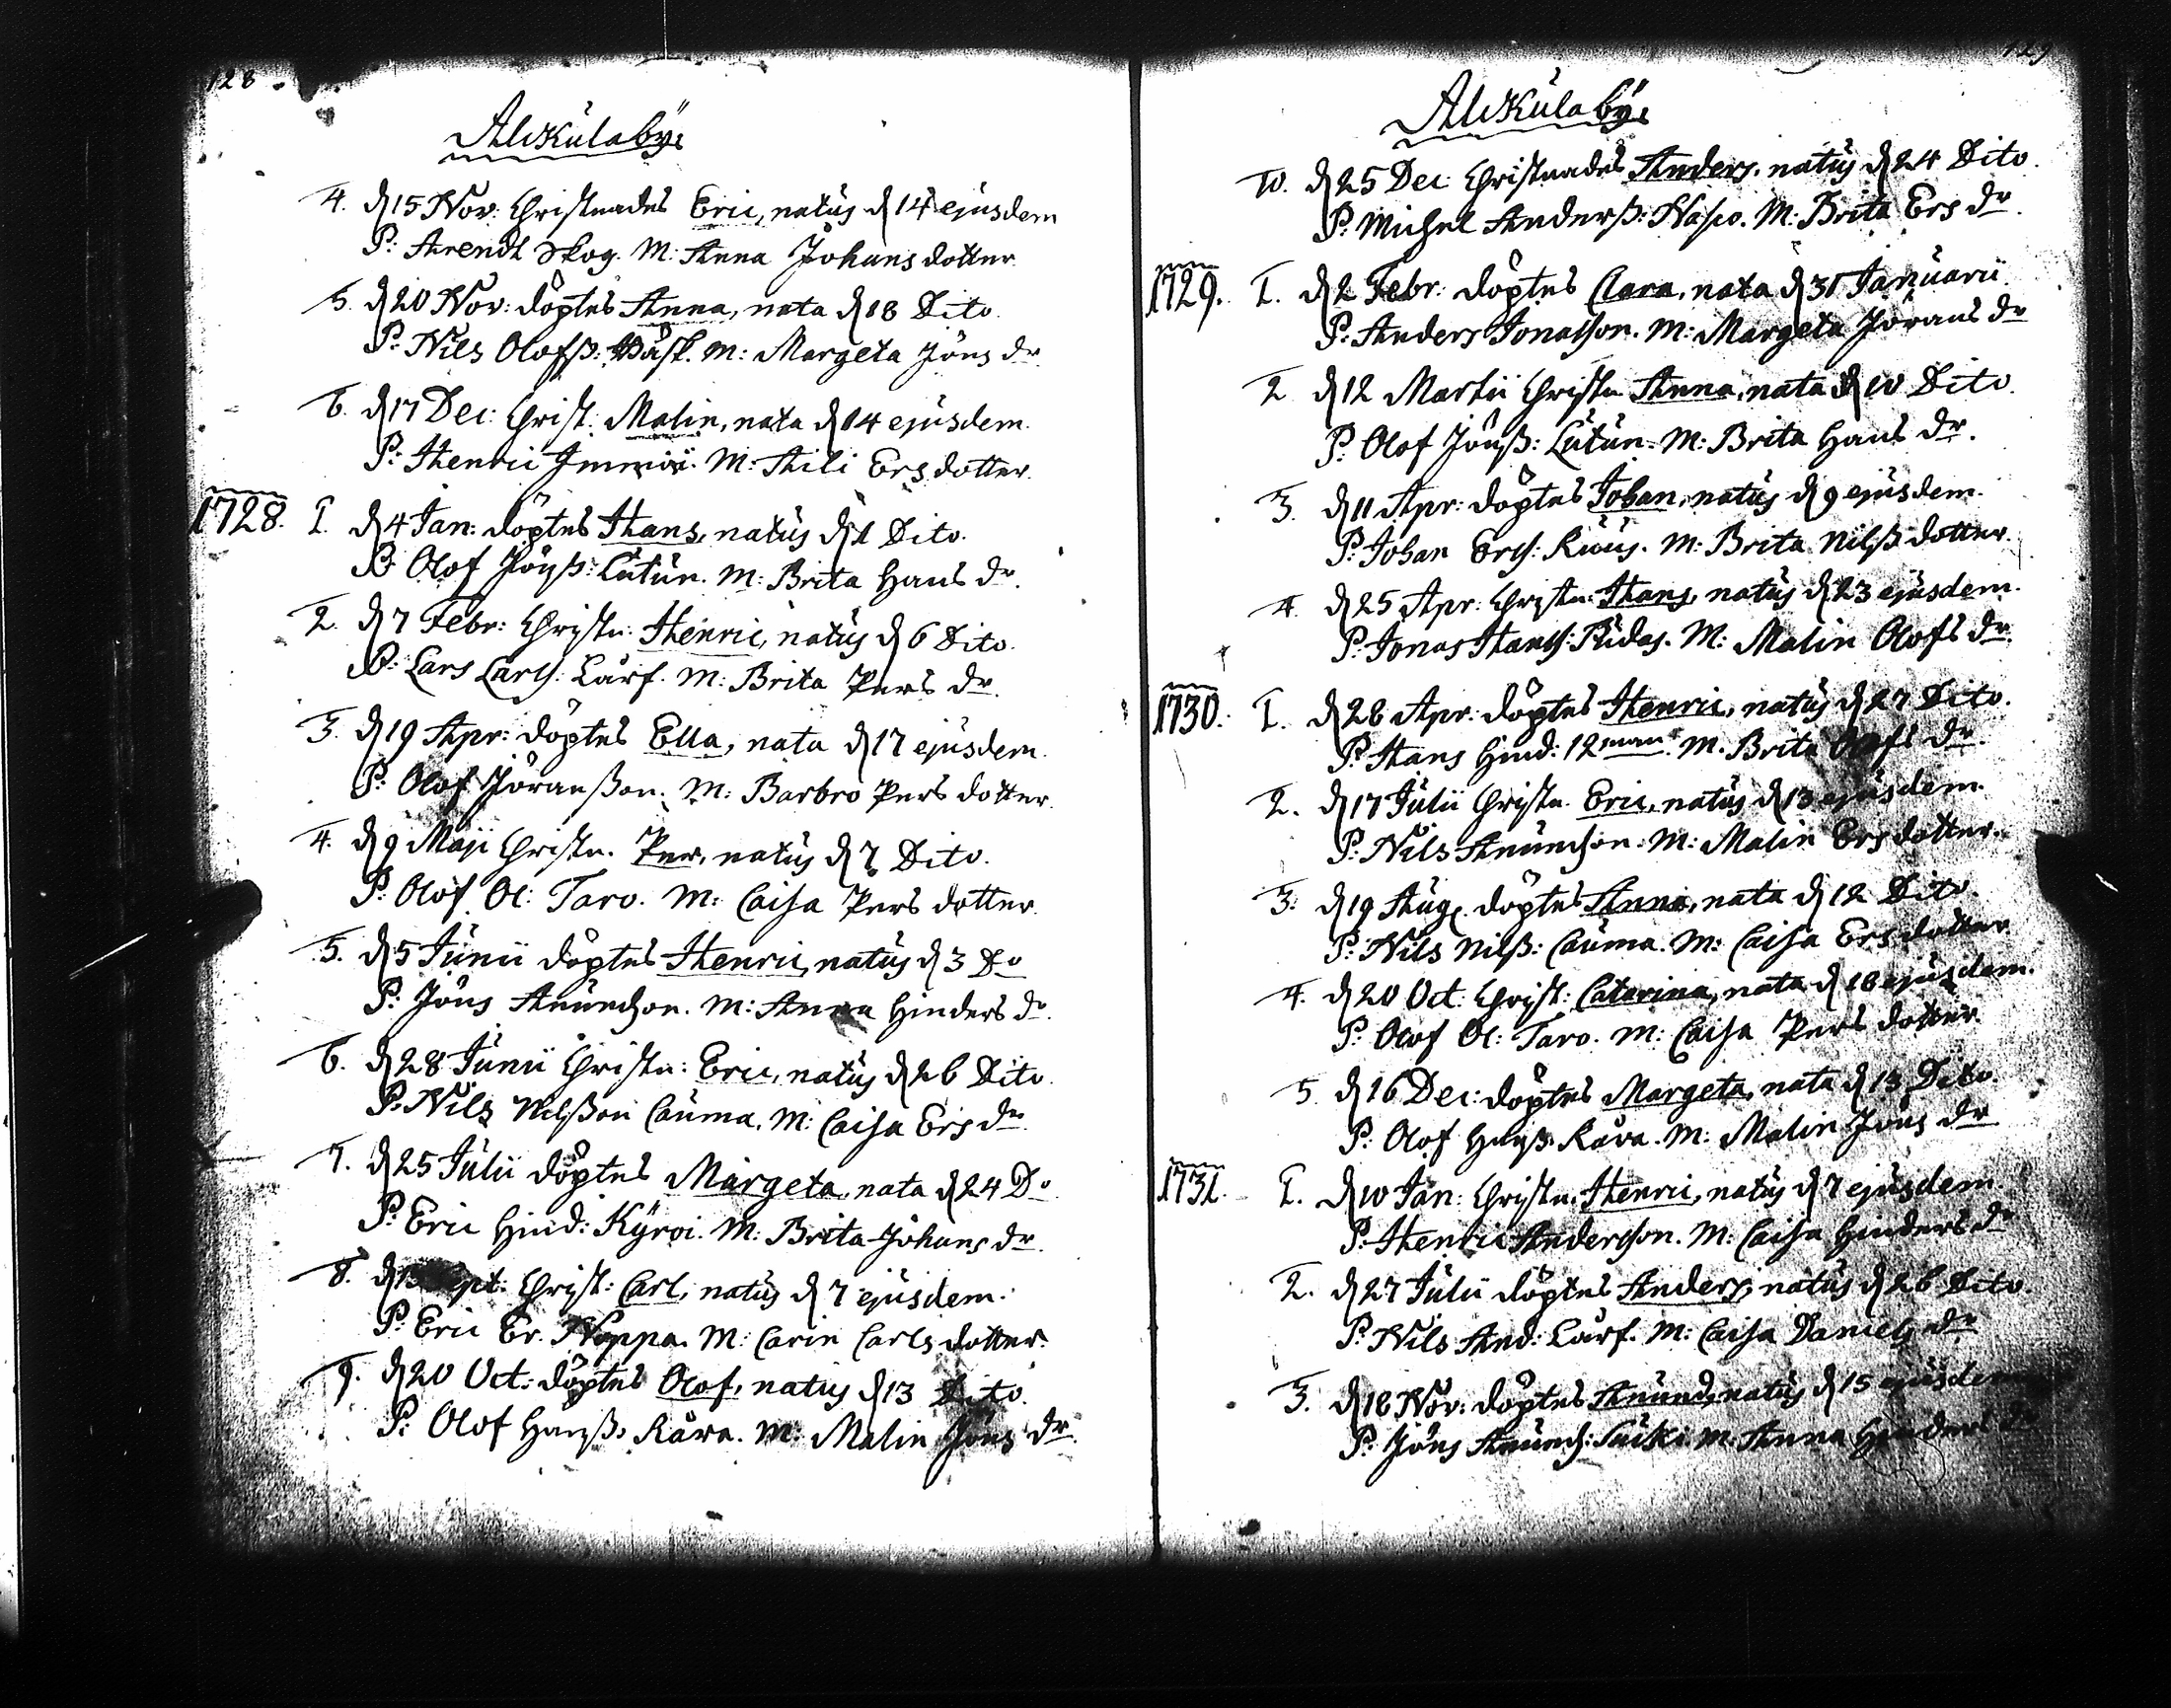 128
Alkkula by:
4. d 15 Nov: Christnades Eric, natus d 14 ejusdem
P: Arendt Skog. M: Anna Johans dotter.
5. d 20 Nov: döptes Anna, nata d 18 Dito.
P: Nils Olofß: M: Margeta Jöns dr
6. d 17 Dec: Christ: Malin, nata d 14 ejusdem.
P: Henric M: Ers dotter.
1728. 1. d 4 Jan: döptes Hans, natus d 1 Dito.
P: Olof Jönß: Lutun. M: Brita Hans dr.
2. d 7 Febr: Christn: Henric, natus d 6 Dito.
P: Lars Larss: Larf. M: Brita Pers dr.
3. d 19 Apr: döptes Ella, nata d 17 ejusdem.
P: Olof Jöranßon. M: Barbro Pers dotter.
4. d 9 Maji Christn. Per, natus d 7 Dito.
P: Olof Ol: Taro. M: Caisa Pers dotter.
5. d 5 Junii döptes Henric, natus d 3 Do
P: Jöns Anundson. M: Anna Hinders dr.
6. d 28 Junii Christn: Eric, natus d 26 Dito.
P: Nils Nilßon Cauma. M: Caisa Ers dr.
7. d 25 Julii döptes Margeta, nata d 24 Do
P: Eric Hind: Kyröi. M: Brita Johans dr.
8. d Sept: Christ: Carl, natus d 7 ejusdem.
P: Eric Er. Noppa. M: Carin Carls dotter.
9. d 20 Oct: döptes Olof, natus d 13 Dito.
P: Olof Hanß: Kara. M: Malin Jöns dr.
129
Alkkula by:
10. d 25 Dec: Christnades Anders, natus d 24 Dito.
P: Michel Anderß: Naso. M: Brita Ers dr.
1729. 1. d 2 Febr: döptes Clara, nata d 31 Januarii.
P: Anders Jonasson. M: Margeta Jörans dr
2 d 12 Martii Christn Anna, nata d 10 Dito.
P: Olof Jönß: Lutun. M: Brita Hans dr.
3. d 11 Apr: döptes Johan, natus d 9 ejusdem.
P: Johan Erss: Kuus. M: Brita Nilß dotter.
4. d 25 Apr: Christn: Hans, natus d 23 ejusdem.
P: Jonas Hanss: Ridas. M: Malin Olofs dr.
1730. 1. d 28 Apr: döptes Henric, natus d 27 Dito.
P: Hans Hind: 12 man. M. Brita Olofs dr.
2. d 17 Julii Christn. Eric, natus d 13 ejusdem.
P: Nils Anundson. M: Malin Ers dotter.
3. d 19 Aug. döptes Anna, nata d 12 Dito.
P: Nils Nilß: Cauma. M: Caisa Ers dotter
4. d 20 Oct: Christ: Catarina, nata d 18 ejusdem.
P: Olof Ol: Taro. M: Caisa Pers dotter.
5. d 16 Dec: döptes Margeta, nata d 13 Dito.
P: Olof Hanß: Kara. M: Malin Jöns dr
1731. 1. d 10 Jan: Christn. Henric, natus d 7 ejusdem.
P: Henric Andersson. M: Caisa Hinders dr
2. d 27 Julii döptes Anders, natus d 26 Dito.
P: Nils And: Larf. M: Caisa Daniels dr
3. d 18 Nov: döptes Anund, natus d 15 ejusdem
P: Jöns Anunds: M: Anna Hinders dr